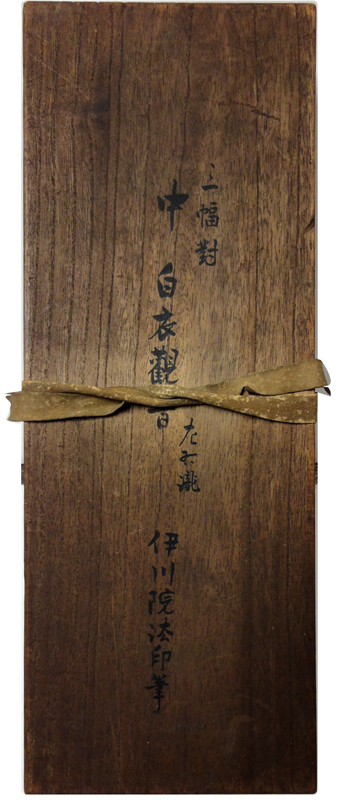 三幅對
中 白衣觀音
左右瀧
伊川院法印筆